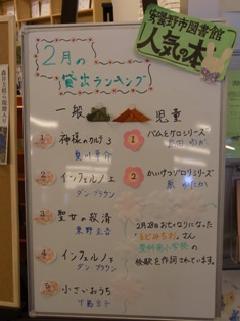 安曇野市図書館
人気の本
2月の
貸出ランキング
一般
児童
1 神様のカルテ3
夏川草介
2 インフェルノ上
ダン・ブラウン
3 聖女の救済
東野圭吾
4 インフェルノ下
ダン・ブラウン
5 小さいおうち
中島京子
1 バムとケロシリーズ
島田ゆか
2 かいけつゾロリシリーズ
原ゆたか
2月28日お亡くなりになった
「まどみちお」さん
小学校の
校歌を作詞されています。